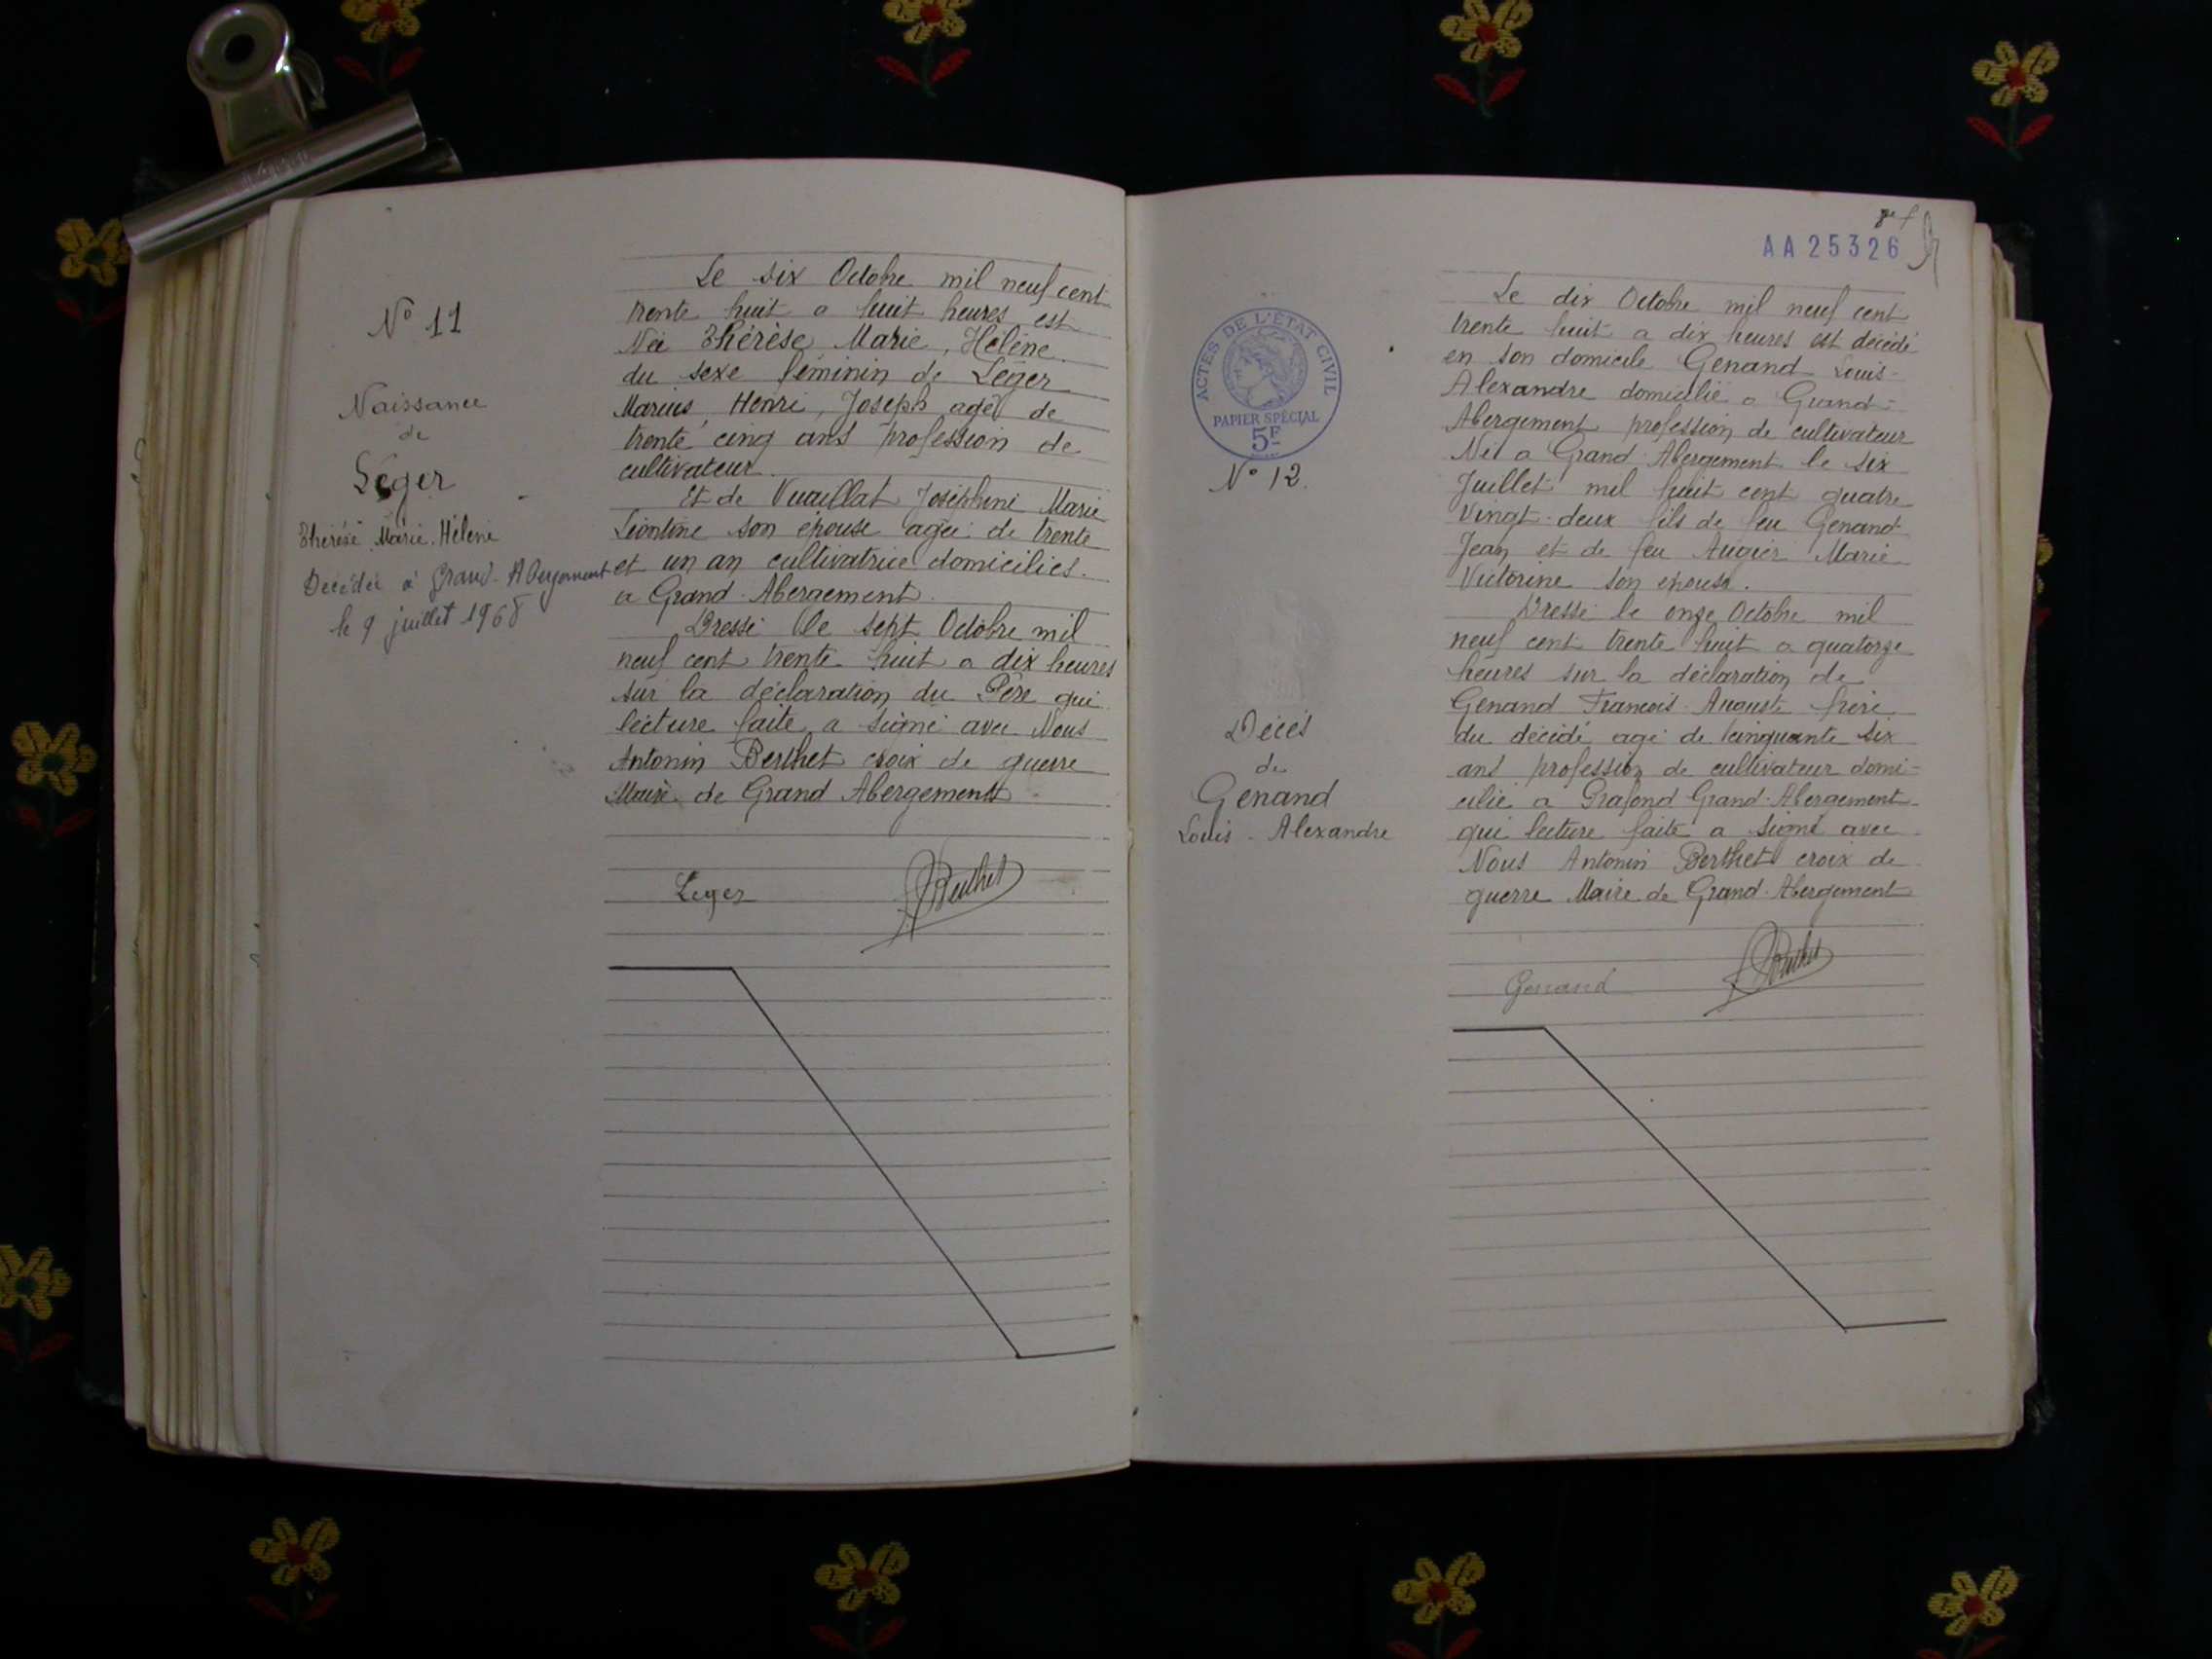 N° 11
Naissance
de
Léger
Thérèse Marie Hélène
Décédée à Grand-Abergement
le 9 juillet 1968
Le six Octobre mil neuf cent
trente huit a huit heures est
Née Thérèse, Marie, Hélène
du sexe féminin de Léger
Marius, Henri, Joseph agé de
trente cinq ans profession de
cultivateur.
Et de Vuaillat Joséphine Marie
Léontine son épouse agée de trente
et un an cultivatrice domiciliés
a Grand-Abergement.
Dressé le sept Octobre mil
neuf cent trente huit a dix heures
sur la déclaration du Père qui
lecture faite a signé avec Nous
Antonin Berthet croix de guerre
Maire de Grand Abergement
Leger
Berthet
AA 25326
ACTES DE L'ÉTAT CIVIL
PAPIER SPÉCIAL
5F
N° 12.
Décés
de
Génand
Louis-Alexandre
Le dix Octobre mil neuf cent
trente huit a dix heures est décédé
en son domicile Genand Louis-
Alexandre domicilié a Grand-
Abergement profession de cultivateur
Né a Grand-Abergement le six
Juillet mil huit cent quatre
vingt-deux fils de feu Genand
Jean et de feu Augier Marie
Victorine son épouse.
Dressé le onze Octobre mil
neuf cent trente huit a quatorze
heures sur la déclaration de
Genand François-Auguste frère
du décédé agé de cinquante six
ans profession de cultivateur domi-
cilié a Grafond Grand-Abergement
qui lecture faite a signé avec
Nous Antonin Berthet croix de
guerre Maire de Grand-Abergement
Genand
Berthet